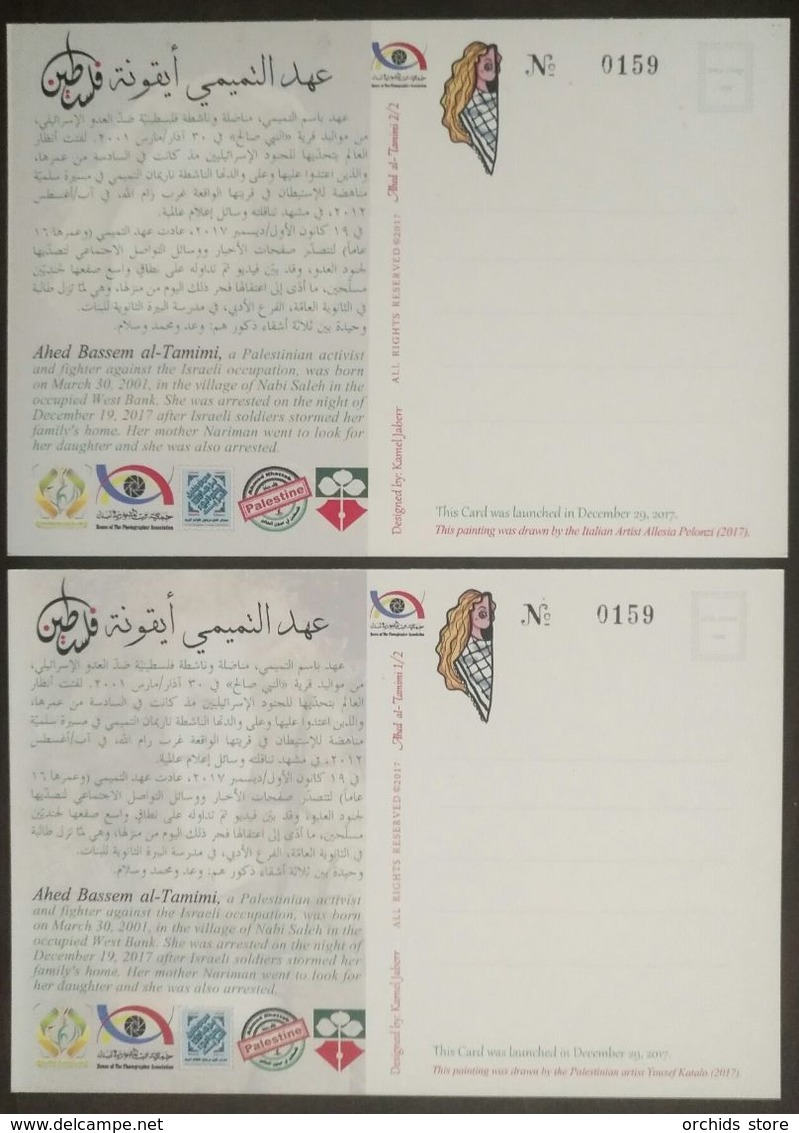 عهد التميمي أيقونة فلسطين
عهد باسم التميمي، مناضلة وناشطة فلسطينيّة ضدّ العدو الإسرائيلي،
من مواليد قرية «النبي صالح» في ٣٠ آذار/مارس ٢٠٠١. لفتت أنظار
العالم بتحدّيها للجنود الإسرائيليين مذ كانت في السادسة من عمرها،
والذين اعتدوا عليها وعلى والدتها الناشطة ناريمان التميمي في مسيرة سلميّة
مناهضة للإستيطان في قريتها الواقعة غرب رام الله، في آب/أغسطس
٢٠١٢، في مشهد تناقلته وسائل إعلام عالمية.
في ١٩ كانون الأول/ديسمبر ٢٠١٧، عادت عهد التميمي (وعمرها ١٦
عاماً) لتتصدّر صفحات الأخبار ووسائل التواصل الاجتماعي لتصدّيها
لجنود العدو، وقد بيّن فيديو تمّ تداوله على نطاقٍ واسع صفعها لجنديّين
مسلّحين، ما أدّى إلى اعتقالها فجر ذلك اليوم من منزلها، وهي لمّا تزل طالبة
في الثانوية العامّة، الفرع الأدبي، في مدرسة البيرة الثانوية للبنات.
وحيدة بين ثلاثة أشقاء ذكور هم: وعد ومحمد وسلام.
Ahed Bassem al-Tamimi, a Palestinian activist
and fighter against the Israeli occupation, was born
on March 30, 2001, in the village of Nabi Saleh in the
occupied West Bank. She was arrested on the night of
December 19, 2017 after Israeli soldiers stormed her
family's home. Her mother Nariman went to look for
her daughter and she was also arrested.
House of The Photographer Association
Ahmad Khattab
Palestine
House of The Photographer Association
Designed by: Kamel Jaberr ALL RIGHTS RESERVED ©2017 Ahed al-Tamimi 2/2
No 0159
This Card was launched in December 29, 2017.
This painting was drawn by the Italian Artist Allesia Pelonzi (2017).
عهد التميمي أيقونة فلسطين
عهد باسم التميمي، مناضلة وناشطة فلسطينيّة ضدّ العدو الإسرائيلي،
من مواليد قرية «النبي صالح» في ٣٠ آذار/مارس ٢٠٠١. لفتت أنظار
العالم بتحدّيها للجنود الإسرائيليين مذ كانت في السادسة من عمرها،
والذين اعتدوا عليها وعلى والدتها الناشطة ناريمان التميمي في مسيرة سلميّة
مناهضة للإستيطان في قريتها الواقعة غرب رام الله، في آب/أغسطس
٢٠١٢، في مشهد تناقلته وسائل إعلام عالمية.
في ١٩ كانون الأول/ديسمبر ٢٠١٧، عادت عهد التميمي (وعمرها ١٦
عاماً) لتتصدّر صفحات الأخبار ووسائل التواصل الاجتماعي لتصدّيها
لجنود العدو، وقد بيّن فيديو تمّ تداوله على نطاقٍ واسع صفعها لجنديّين
مسلّحين، ما أدّى إلى اعتقالها فجر ذلك اليوم من منزلها، وهي لمّا تزل طالبة
في الثانوية العامّة، الفرع الأدبي، في مدرسة البيرة الثانوية للبنات.
وحيدة بين ثلاثة أشقاء ذكور هم: وعد ومحمد وسلام.
Ahed Bassem al-Tamimi, a Palestinian activist
and fighter against the Israeli occupation, was born
on March 30, 2001, in the village of Nabi Saleh in the
occupied West Bank. She was arrested on the night of
December 19, 2017 after Israeli soldiers stormed her
family's home. Her mother Nariman went to look for
her daughter and she was also arrested.
House of The Photographer Association
Ahmad Khattab
Palestine
House of The Photographer Association
Designed by: Kamel Jaberr ALL RIGHTS RESERVED ©2017 Ahed al-Tamimi 1/2
No 0159
This Card was launched in December 29, 2017.
This painting was drawn by the Palestinian artist Yousef Katalo (2017).
orchids store